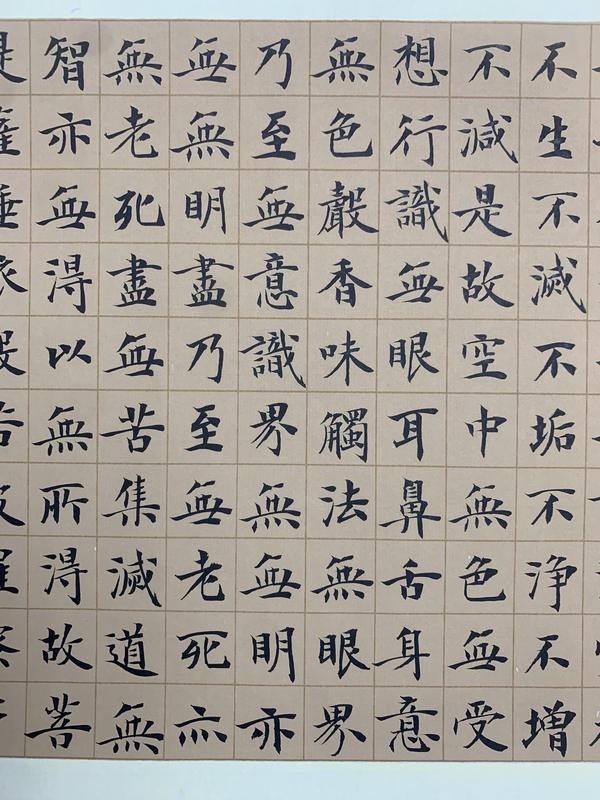 不生不滅不垢不浄不增
不減是故空中無色無受
想行識無眼耳鼻舌身意
無色聲香味觸法無眼界
乃至無意識界無無明亦
無無明盡乃至無老死亦
無老死盡無苦集滅道無
智亦無得以無所得故菩